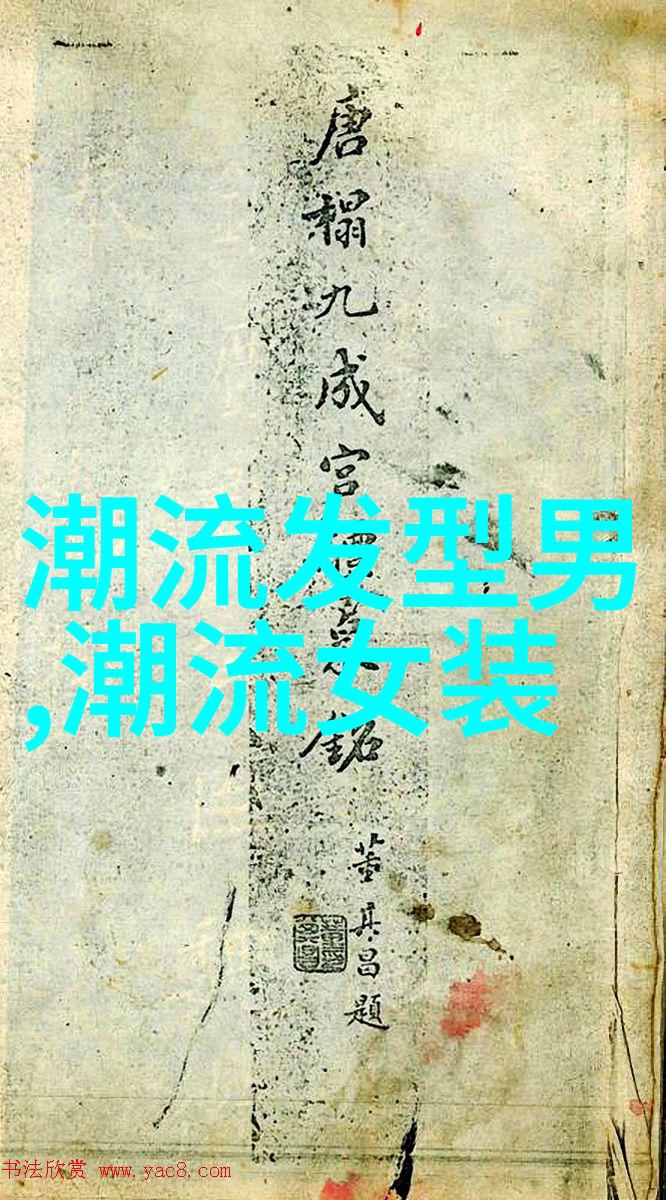 唐榻九成宮醴泉銘
董其昌題
潮流发型男
,潮流女装
书法欣赏 www.yac8.com